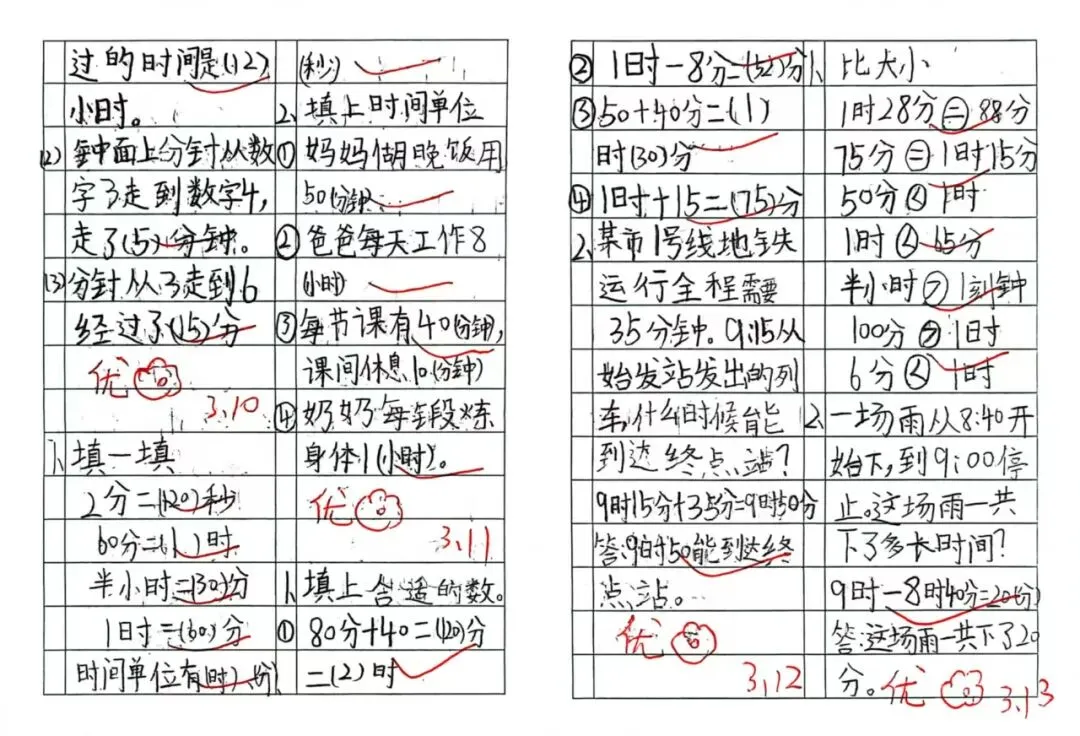 过的时间是(12)
小时。
(2) 钟面上分针从数
字3走到数字4,
走了(5)分钟。
(3) 分针从3走到6
经过了(15)分
优
3.10
1、填一填
2分=(120)秒
60分=(1)时
半小时=(30)分
1时=(60)分
时间单位有(时)、(分)、
(秒)
2、填上时间单位
① 妈妈做晚饭用
50(分钟)
② 爸爸每天工作8
(小时)
③ 每节课有40(分钟),
课间休息10(分钟)
④ 奶奶每年段炼
身体1(小时)。
优
3.11
1、填上合适的数。
① 80分+40=(120)分
=(2)时
② 1时-8分=(52)分
③ 50+40分=(1)
时(30)分
④ 1时+15=(75)分
2、某市1号线地铁
运行全程需要
35分钟。9:15从
始发站发出的列
车,什么时候能
到达终点站?
9时15分+35分=9时50分
答:9时50能到达终
点站。
优
3.12
1、比大小
1时28分=88分
75分=1时15分
50分<1时
1时<65分
半小时>1刻钟
100分>1时
6分<1时
2、一场雨从8:40开
始下,到9:00停
止。这场雨一共
下了多长时间?
9时-8时40分=20(分)
答:这场雨一共下了20
分。
优
3.13